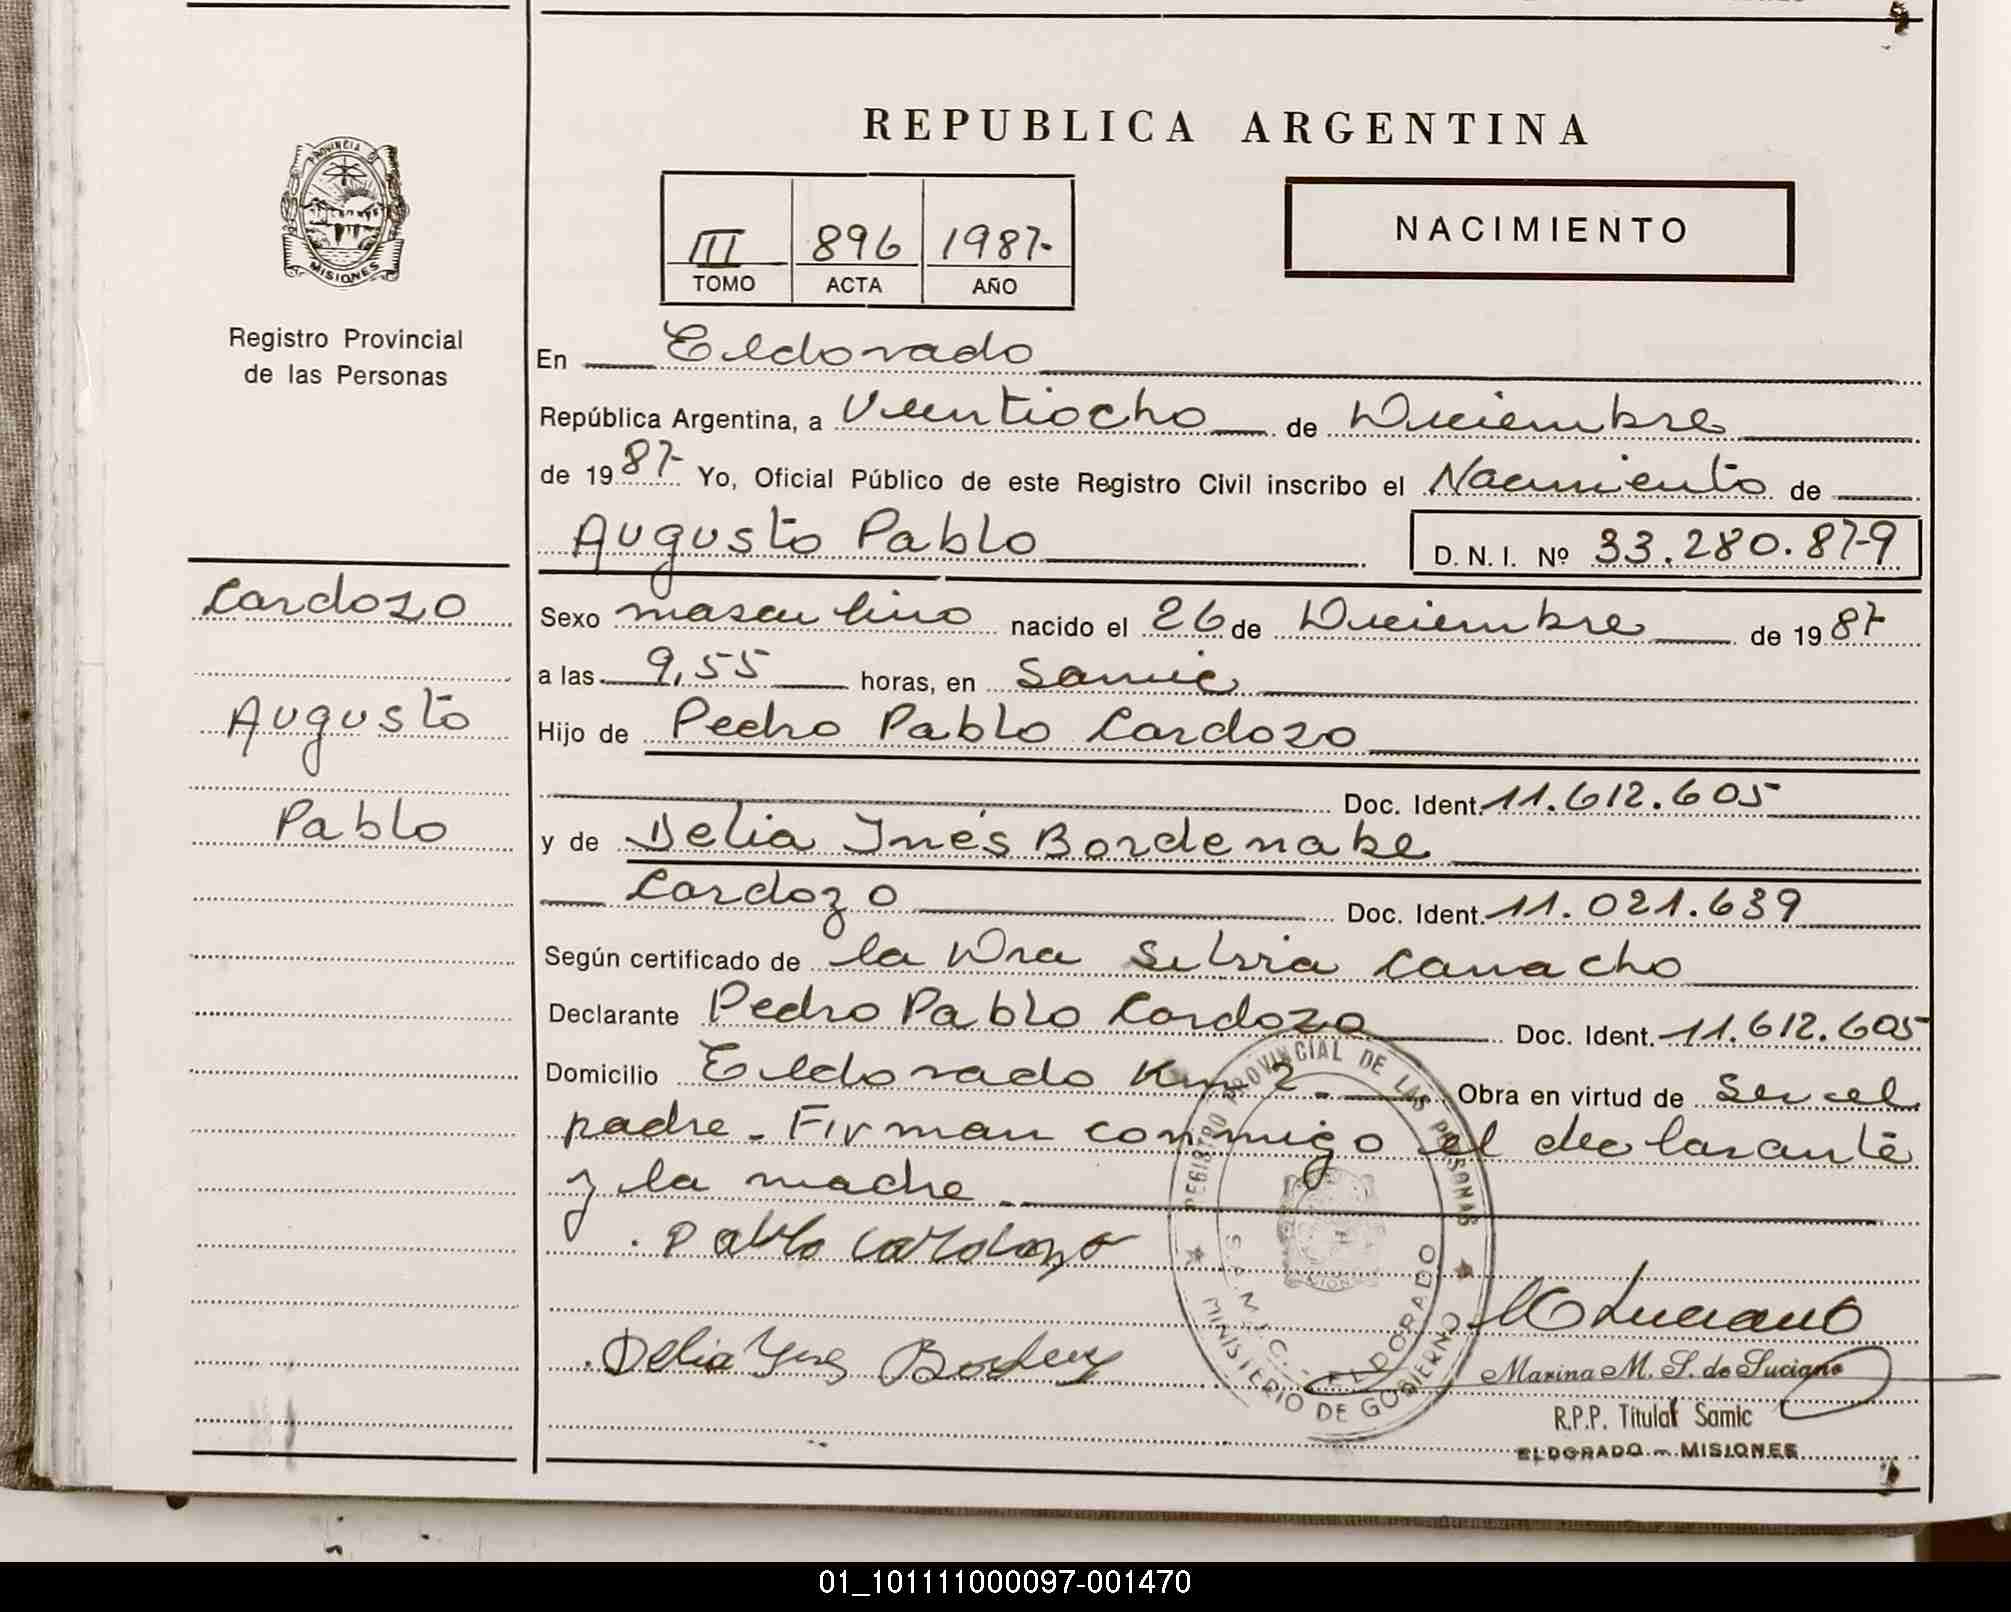 REPUBLICA ARGENTINA
PROVINCIA DE
MISIONES
Registro Provincial
de las Personas
III 896 1987-
TOMO ACTA AÑO
NACIMIENTO
En Eldorado
República Argentina, a Veintiocho de Diciembre
de 1987- Yo, Oficial Público de este Registro Civil inscribo el Nacimiento de
Augusto Pablo D. N. I. Nº 33.280.879
Cardozo
Augusto
Pablo
Sexo masculino nacido el 26 de Diciembre de 1987
a las 9,55 horas, en Samic
Hijo de Pedro Pablo Cardozo
Doc. Ident. 11.612.605
y de Delia Inés Bordenabe
Cardozo Doc. Ident. 11.021.639
Según certificado de la Dra Silvia Camacho
Declarante Pedro Pablo Cardozo Doc. Ident. 11.612.605
Domicilio Eldorado Km 2 Obra en virtud de ser el
padre. Firman conmigo el declarante
y la madre.
Pablo Cardozo
REGISTRO PROVINCIAL DE LAS PERSONAS
S.A.M.I.C. - ELDORADO
MINISTERIO DE GOBIERNO
Delia Ines
Luciano
Marina M. S. de Luciano
R.P.P. Titular Samic
ELDORADO - MISIONES
01_101111000097-001470